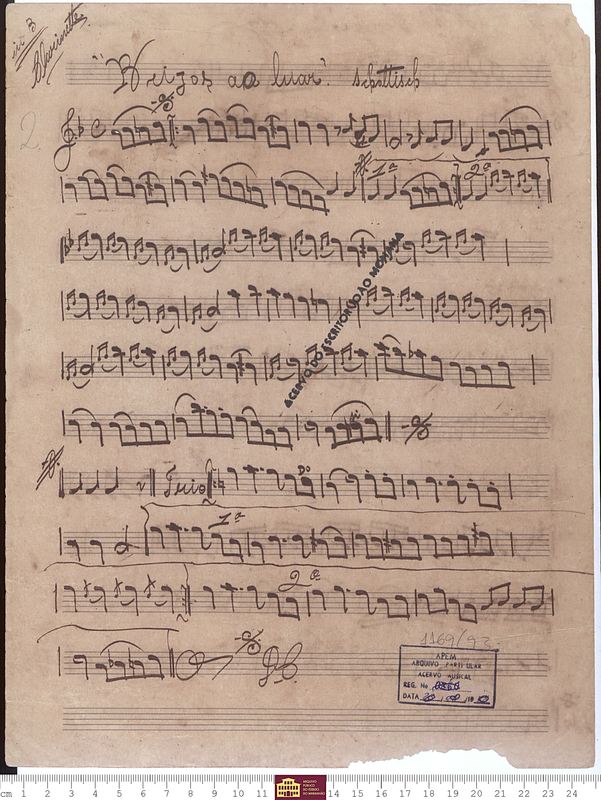 in B
Clarinetta
2
"Beijos ao luar". schottisch
1ª 2ª
ACERVO DO ESCRITOR JOÃO MOHANA
Trio
Do
1ª
2ª
D.C.
1169/93
APEM
ARQUIVO PARTICULAR
ACERVO MUSICAL
REG. No
DATA
cm 1 2 3 4 5 6 7 8 9 10 11 14 15 16 17 18 19 20 21 22 23 24
ARQUIVO
PÚBLICO
DO ESTADO
DO MARANHÃO